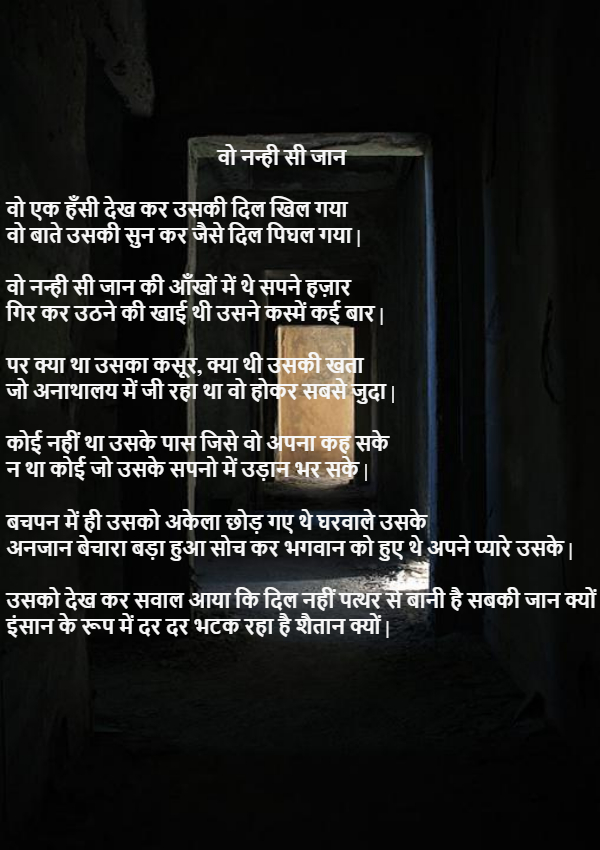 वो नन्ही सी जान
वो एक हँसी देख कर उसकी दिल खिल गया
वो बाते उसकी सुन कर जैसे दिल पिघल गया |
वो नन्ही सी जान की आँखों में थे सपने हज़ार
गिर कर उठने की खाई थी उसने कस्में कई बार |
पर क्या था उसका कसूर, क्या थी उसकी खता
जो अनाथालय में जी रहा था वो होकर सबसे जुदा |
कोई नहीं था उसके पास जिसे वो अपना कह सके
न था कोई जो उसके सपनो में उड़ान भर सके |
बचपन में ही उसको अकेला छोड़ गए थे घरवाले उसके
अनजान बेचारा बड़ा हुआ सोच कर भगवान को हुए थे अपने प्यारे उसके |
उसको देख कर सवाल आया कि दिल नहीं पत्थर से बानी है सबकी जान क्यों
इंसान के रूप में दर दर भटक रहा है शैतान क्यों |